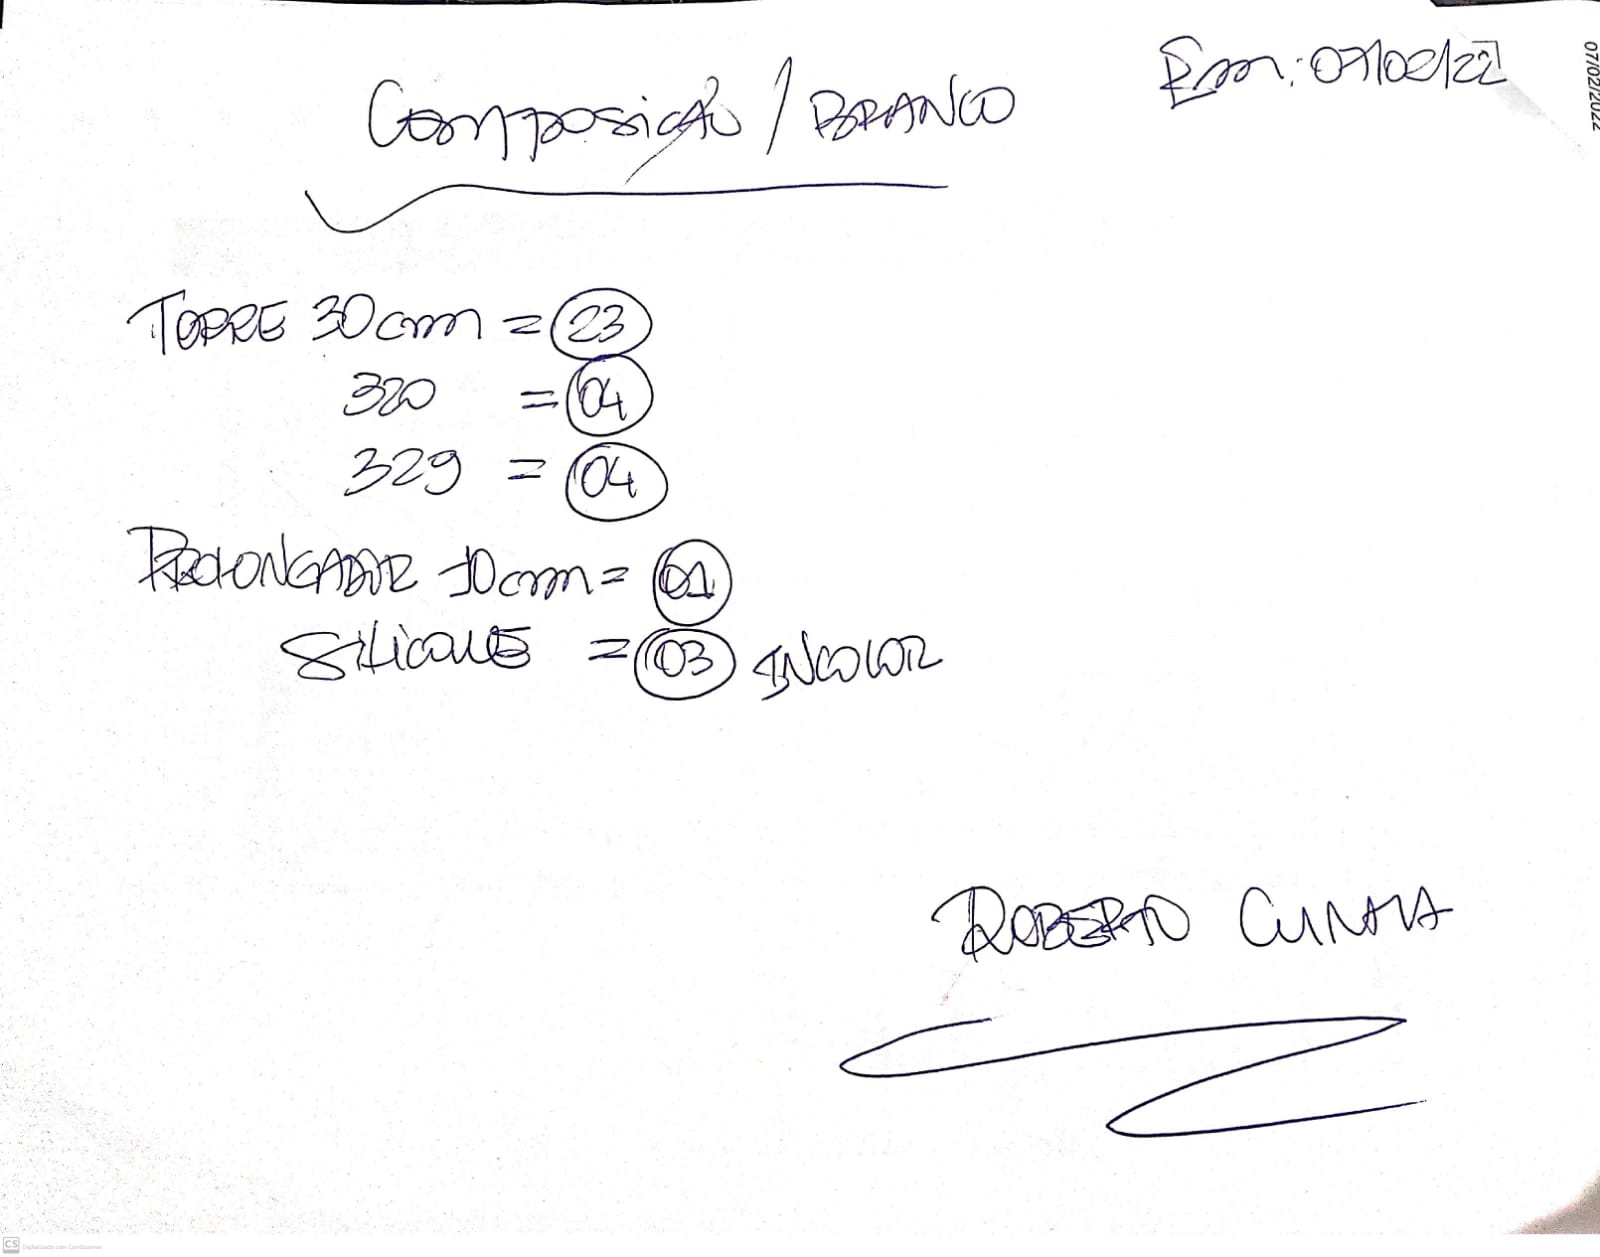 Em: 07/02/22
07/02/2022
Composição / BRANCO
TORRE 30cm = 23
320 = 04
329 = 04
PROLONGADOR 10cm = 01
SILICONE = 03 INCOLOR
ROBERTO CUNHA
CS Digitalizado com CamScanner